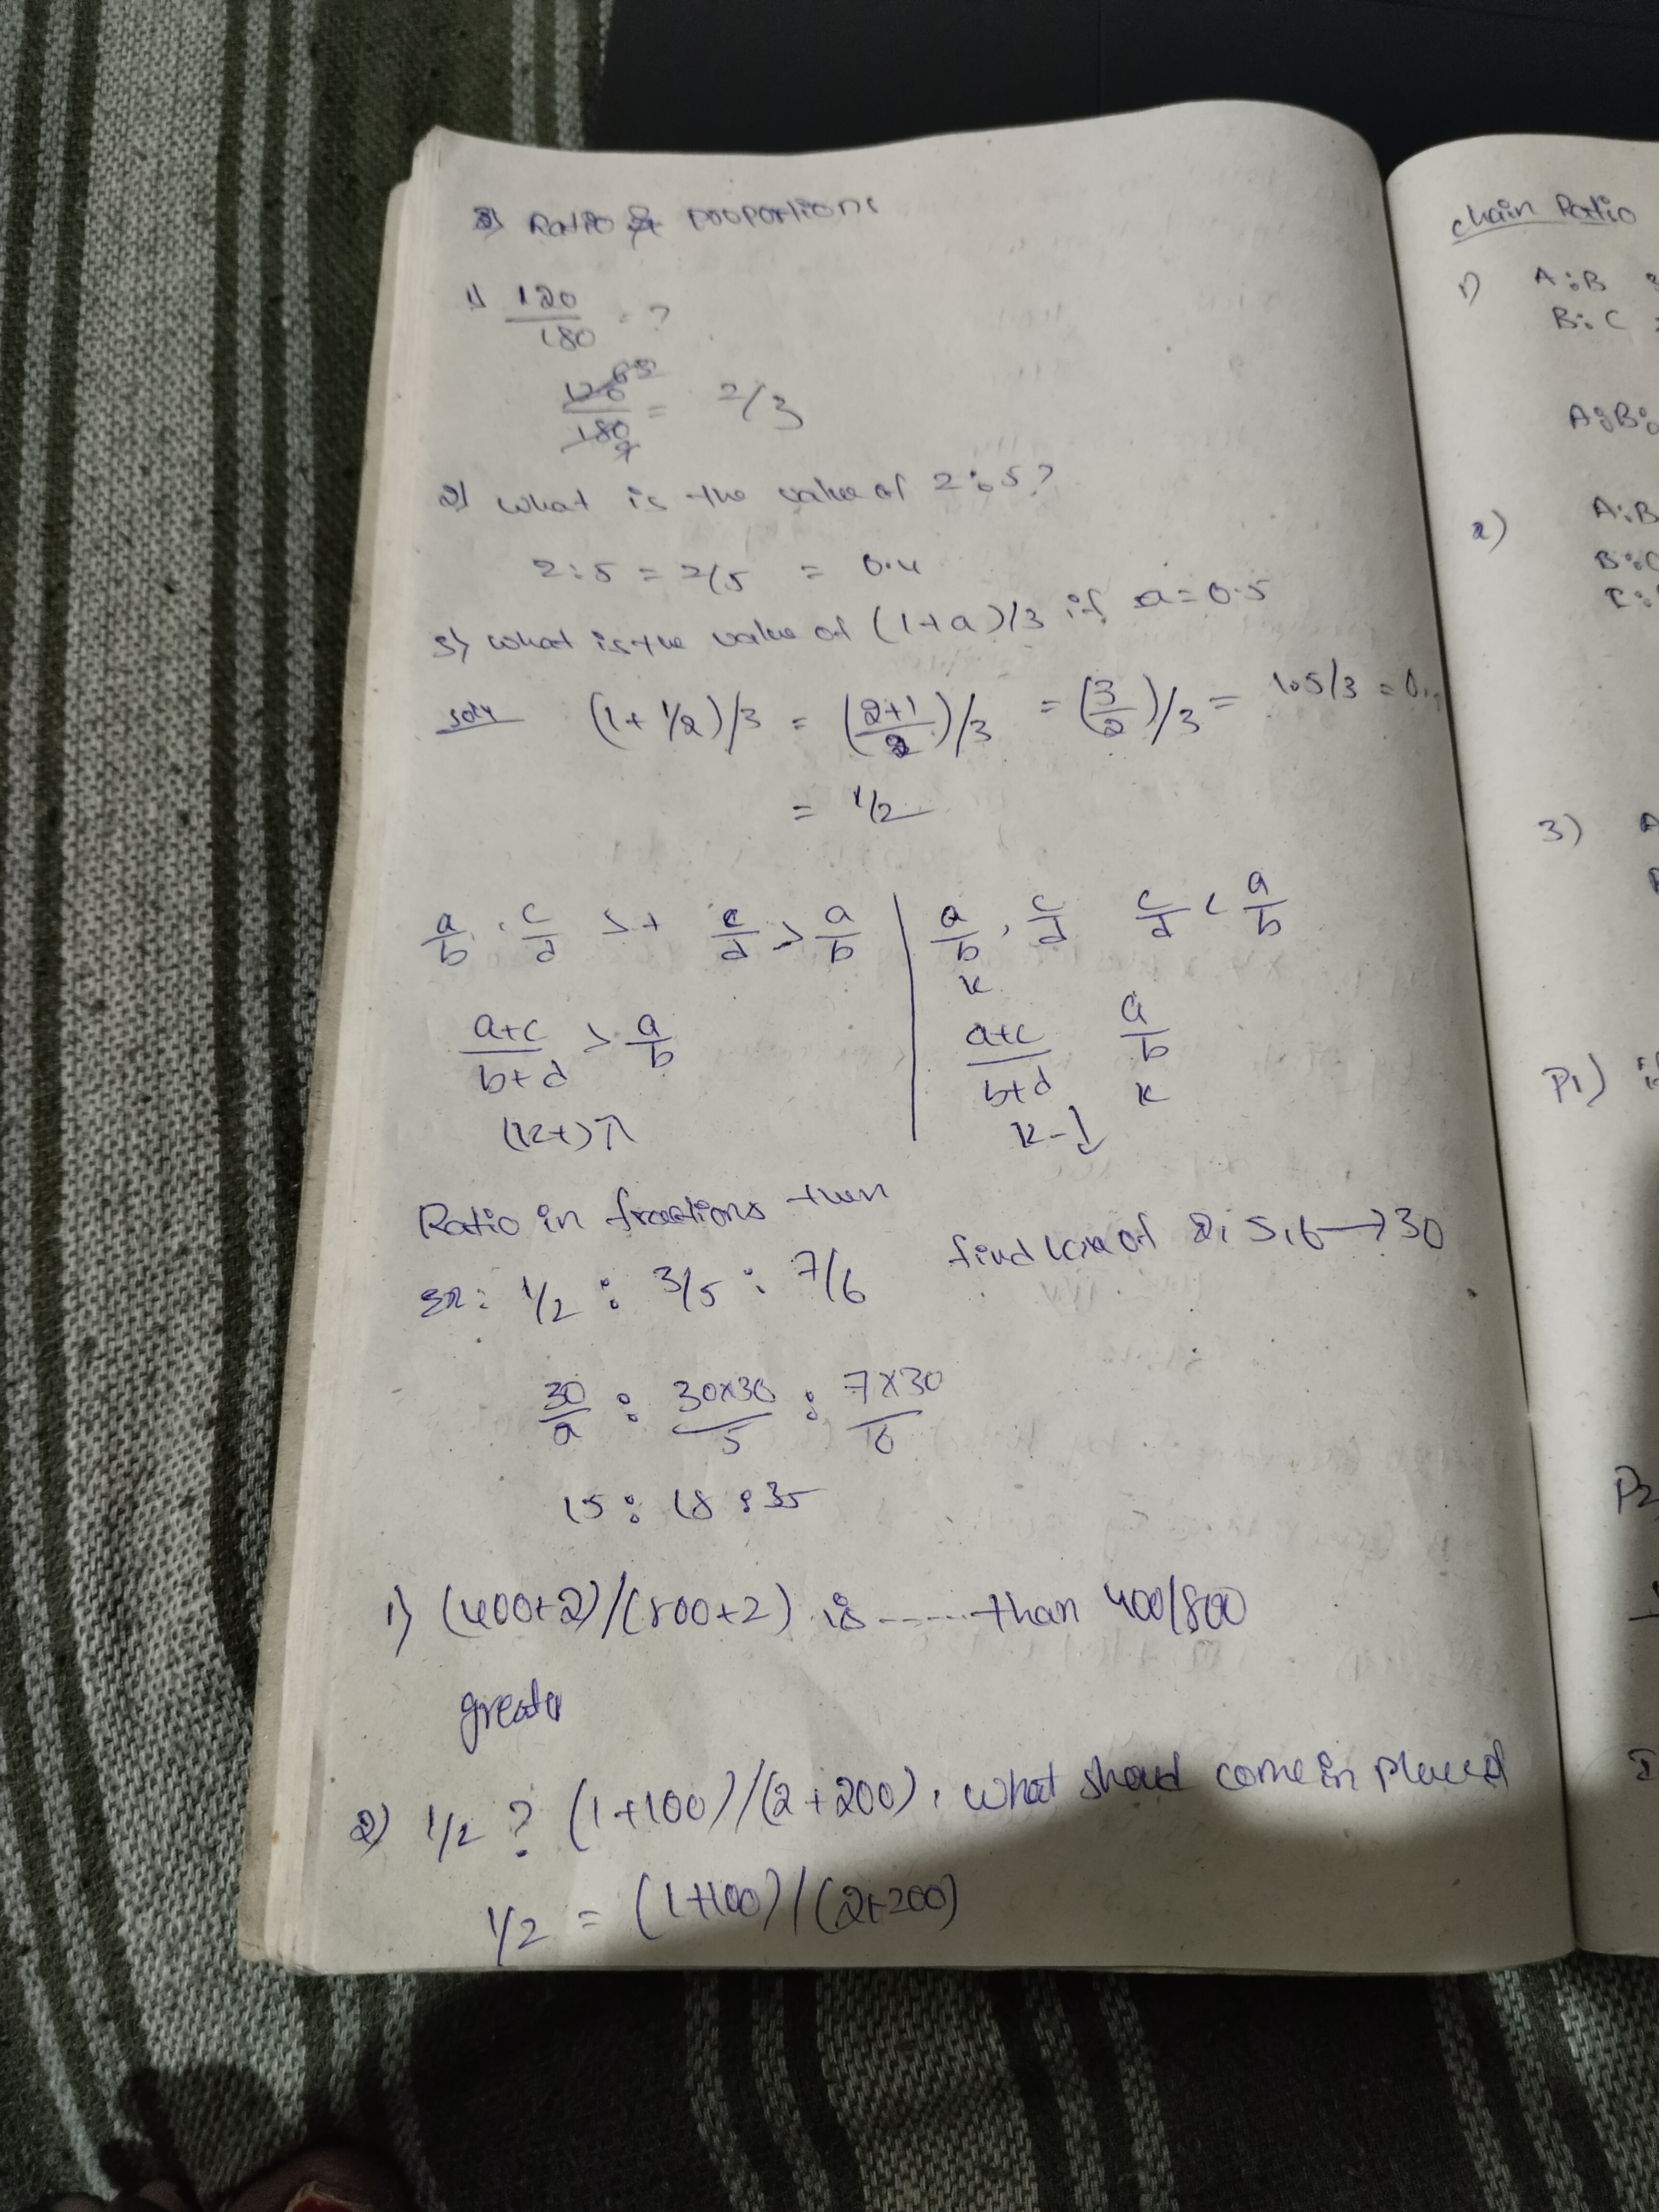 3) Ratio & proportions
1) 120/180 = ?
120/180 = 2/3
2) what is the value of 2:5?
2:5 = 2/5 = 0.4
3) what is the value of (1+a)/3 if a=0.5
soln (1+1/2)/3 = (2+1/2)/3 = (3/2)/3 = 1.5/3 = 0.
= 1/2
a/b, c/d c/d > a/b | a/b, c/d c/d < a/b
K
a+c/b+d > a/b | a+c/b+d a/b
K
K-↓
Ratio in fractions then
Ex: 1/2 : 3/5 : 7/6 find lcm of 2,5,6 → 30
30/2 : 30x30/5 : 7x30/6
15 : 18 : 35
1) (400+2)/(800+2) is ------ than 400/800
greater
2) 1/2 ? (1+100)/(2+200), what shoud come in place of
1/2 = (1+100)/(2+200)
chain Ratio
1) A:B
B:C
A:B:
2) A:B
B:C
C:
3) A
B
P1) i
P2